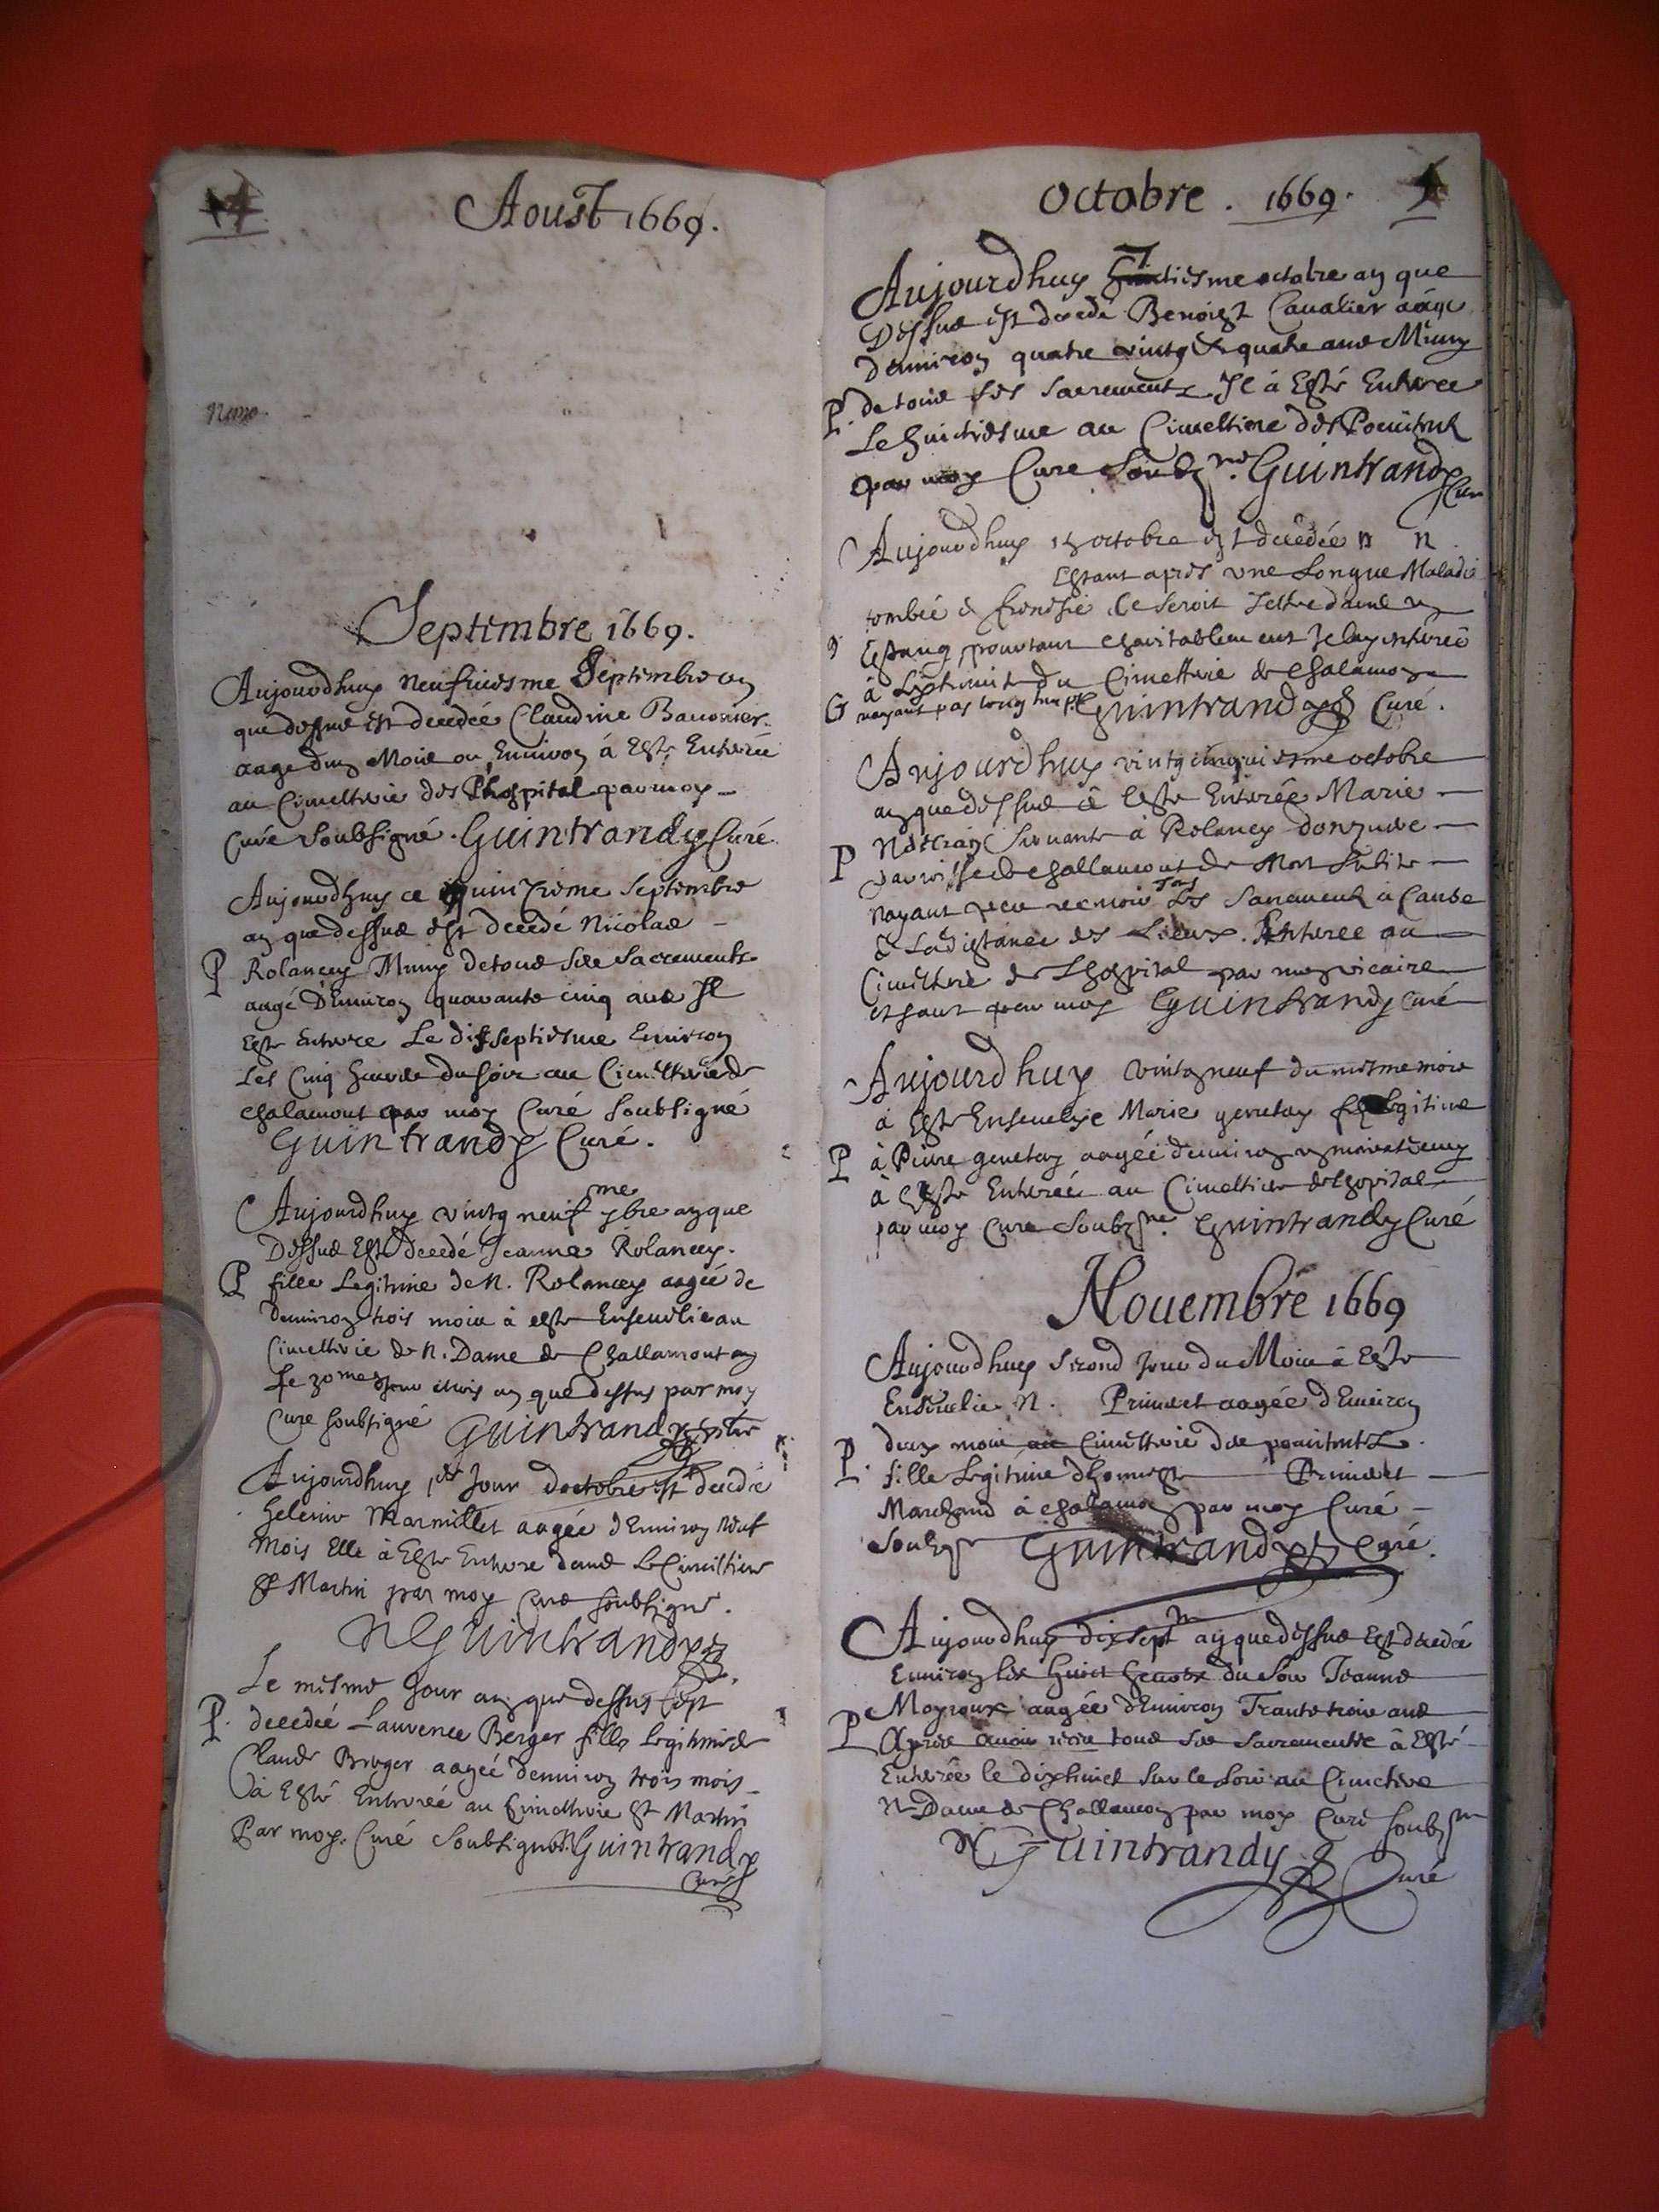 Aoust 1669.
Septembre 1669.
Aujourdhuy neufuiesme Septembre an
que dessus est decedée Claudine
aage dun Mois ou Enuiron á Esté Enterrée
au Cimettiere de Lhospital par moy
Curé Soubsigné. Guintrandy Curé
Aujourdhuy ce quinzieme Septembre
an que dessus est decedé Nicolas
P Rolancey Muny de tous ses Sacrements
aagé D'Enuiron quarante cinq ans Il
Este Enterre Le disseptiesme Enuiron
Les Cinq heures du soir au Cimettiere de
Chalamont par moy Curé Soubsigné
Guintrandy Curé.
Aujourdhuy vintg neuf me 7bre an que
Dessus Est Decedé Jeanne Rolancey.
P fille Legitime de N. Rolancey aagée de
denuiron trois mois á esté Enseuelie au
Cimettiere de N. Dame de Challamont
Le 30me par moy
Cure soubsigné Guintrandy
Aujourdhuy per Jour doctobre est decedée
helenne Marmillet aagée d'Enuiron neuf
Mois Elle á Esté Enterre dans Le Cimettiere
St Martin par moy Curé soubsigné.
N Guintrandy
Le mesme Jour an que dessus est
P. decedée Laurence Berger fille legitime de
Claude Berger aagée denuiron trois mois
á Esté Enterrée au Cimettiere St Martin
Par moy Curé Soubsigné N Guintrandy
Curé
octobre . 1669.
Aujourdhuy octobre an que
Dessus est decedé Benoist Caualier aagé
Denuiron quatre vintg & quatre ans Muny
P. de tous ses Sacrements. Il á Esté Enterré
Le huictiesme au Cimettiere des Penitents
par moy Curé Soubs né. Guintrandy
Cure
Aujourdhuy octobre est decedée n n
Estant apres vne Longue Maladie
tombée Ce seroit Jettée dans vn
Estang, pourtant charitablement Je lay enterrée
á du Cimettiere de Chalamon
Guintrandy Curé.
Aujourdhuy vintg cinquiesme octobre
an que dessus á Esté Enterrée Marie
Seruante á Rolancey
P paroisse de Challamont de Mort Subite
nayant peu receuoir Les Sacrements á Cause
de La distance des Lieux. Enterree au
Cimettiere de Lhospital par mon vicaire
Guintrandy Curé
Aujourdhuy vintg neuf du mesme mois
á Esté Enseuelye Marie
P á Pierre aagée denuiron
á Esté Enterrée au Cimettiere de lhopital
par moy Curé Soubs né. Guintrandy Curé
Nouembre 1669
Aujourdhuy Second Jour du Mois á Esté
Enseuelie N. Primet aagée d'Enuiron
deux mois au Cimettiere des penitents.
P. fille Legitime dhonneste Primet
Marchand á Chalamon par moy Curé
Soubs né Guintrandy Curé.
Aujourdhuy dixsept an que dessus Est decedée
Enuiron les huict heures du Soir Jeanne
Moyroux aagée d'Enuiron Trante trois ans
P Apres auoir receu tous ses Sacrements á Esté
Enterrée le dixhuict Sur le Soir au Cimetiere
N Dame de Challamon par moy Curé soubs né
N Guintrandy Curé